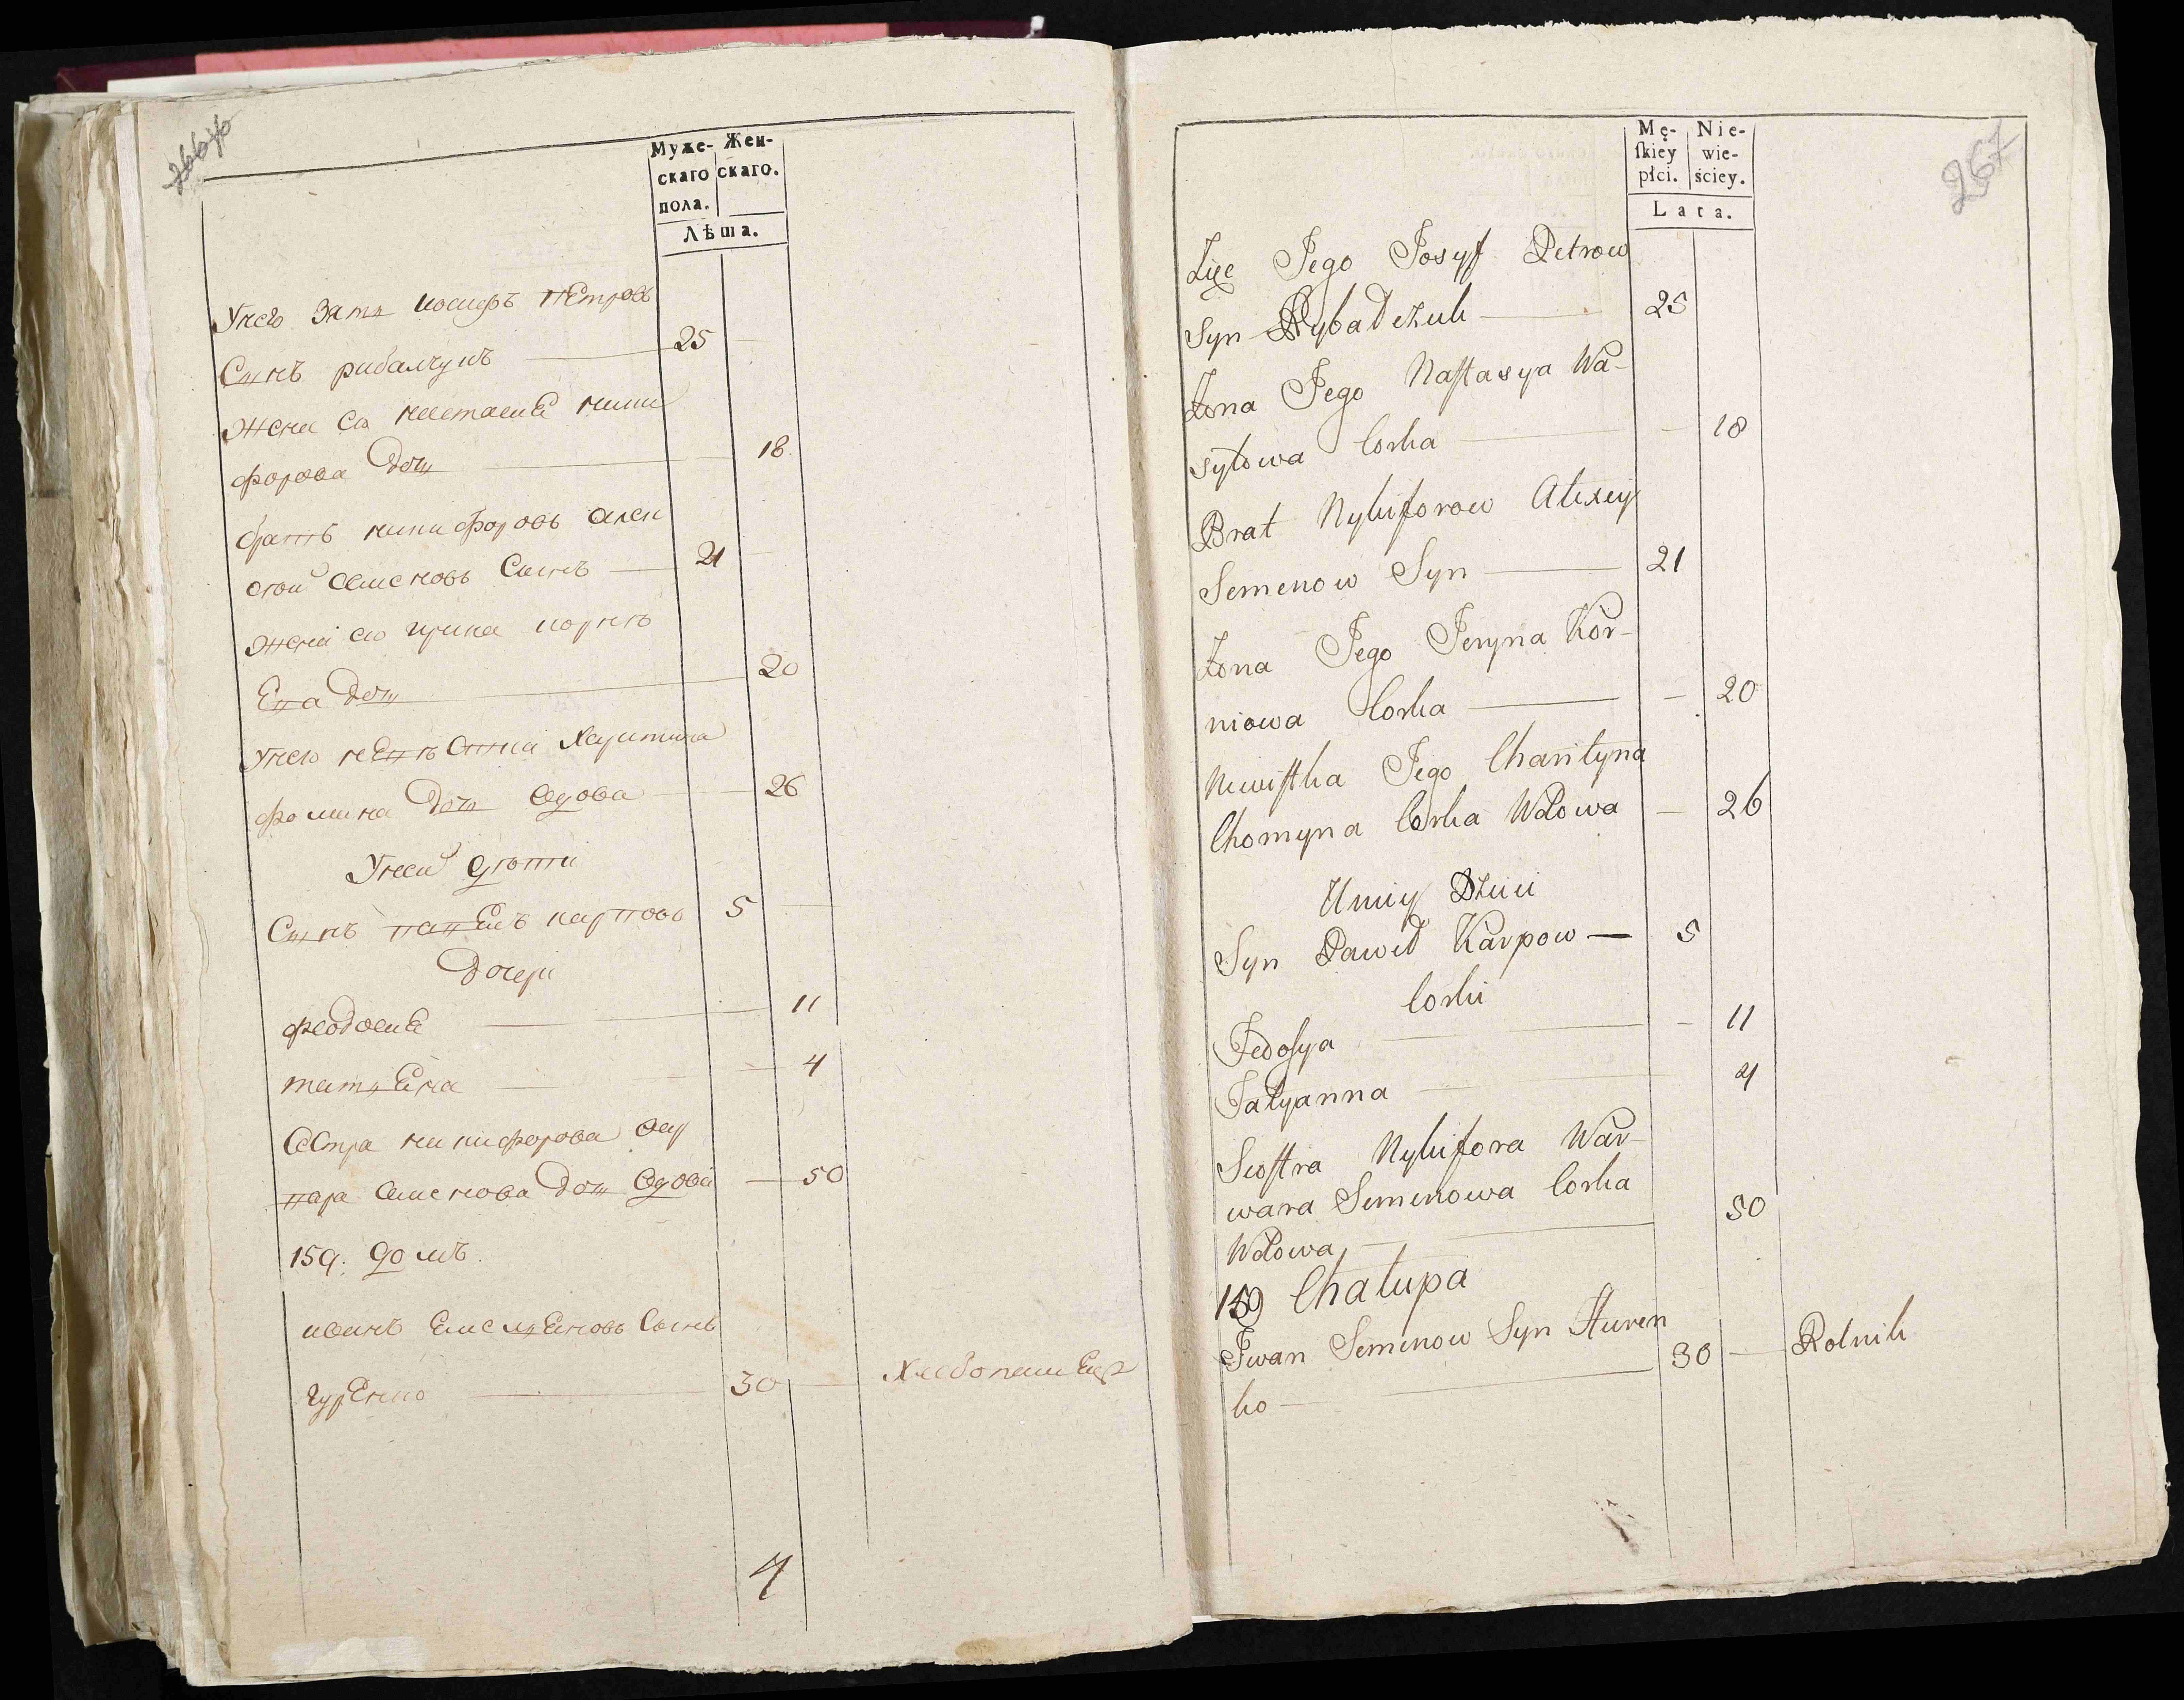 266 об
Муже- Жен-
скаго скаго.
пола.
Лѣта.
У него зять иосифъ петровъ
Сынъ рибалчукъ 25
жена его настасиа ники
форова дочь 18
братъ никифоровъ алек
сѣй семеновъ Сынъ 21
жена его ирина корнѣ
ева дочь 20
У него невѣстка Харитина
фомина дочь вдова 26
У неи дѣти
Сынъ павелъ карповъ 5
дочери
феодосиа 11
татиена 4
сестра никифорова вар
вара семенова дочь вдова 50
159. домъ.
иванъ семеновъ Сынъ
гуренко 30 Хлебопашецъ
4
267
Mę- Nie-
skiey wie-
płci. ściey.
Lata.
Zięc Jego Josyf Petrow
Syn Rybałczuk 25
Żona Jego Nastasya Wa-
sylowa Corka 18
Brat Nykiforow Alexiy
Semenow Syn 21
Żona Jego Jeryna Kor-
niowa Corka 20
Newistka Jego Charityna
Chomyna Corka Wdowa 26
U niey Dzieci
Syn Paweł Karpow 5
Corki
Fedosya 11
Tatyanna 4
Siostra Nykifora War-
wara Semenowa Corka
Wdowa 50
159 Chalupa
Jwan Semenow Syn Huren
ko 30 Rolnik